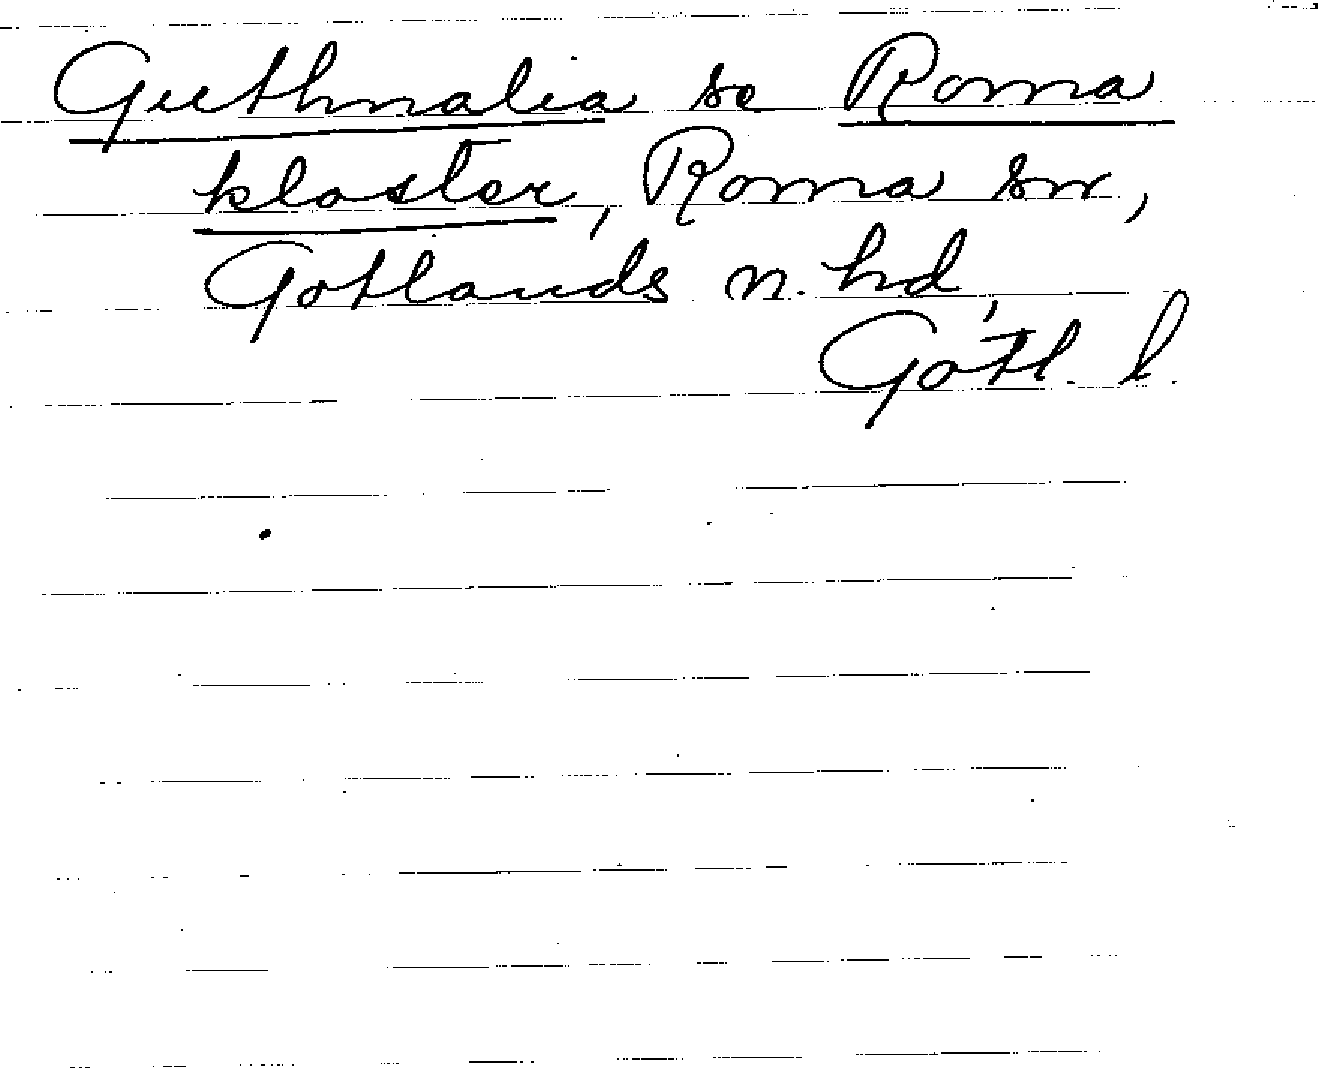 Guthnalia se Roma
kloster, Roma sn,
Gotlands n. hd,
Gotl. l